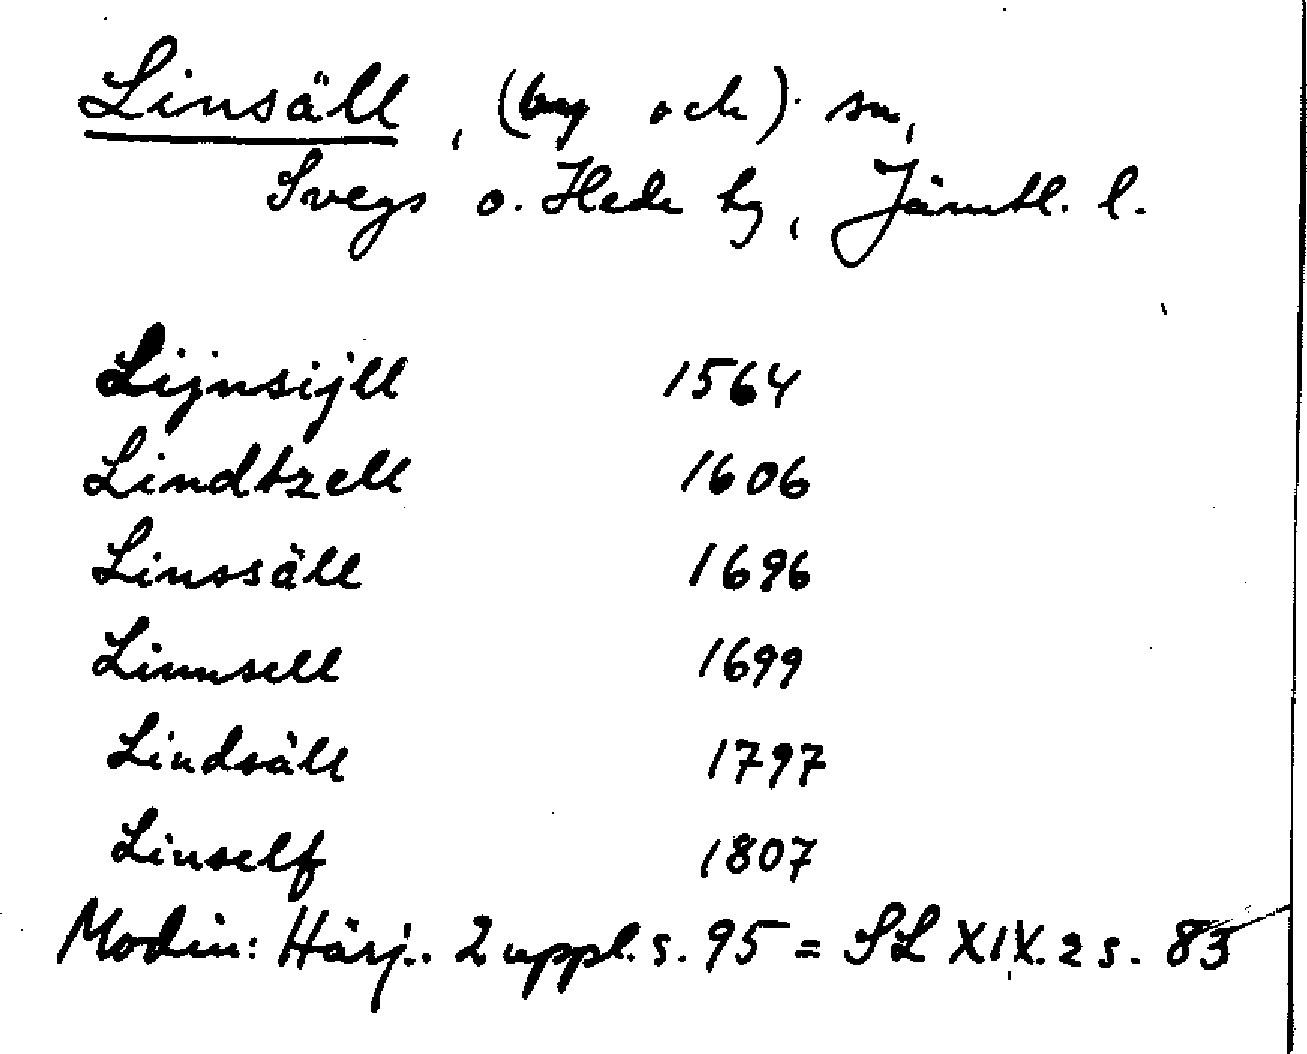 Linsäll, (by och) sn,
Svegs o. Hede hg, Jämtl. l.
Lijnsijll 1564
Lindtzell 1606
Linssäll 1696
Linnsell 1699
Lindsäll 1797
Linself 1807
Modin: Härj.. 2 uppl. s. 95 = SL XIX. 2 s. 83